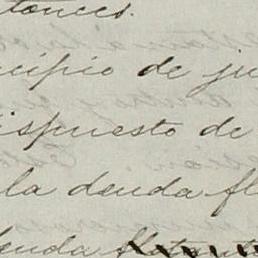 tonces.
cipio de ju
ispuesto de
la deuda fl
deuda flotante